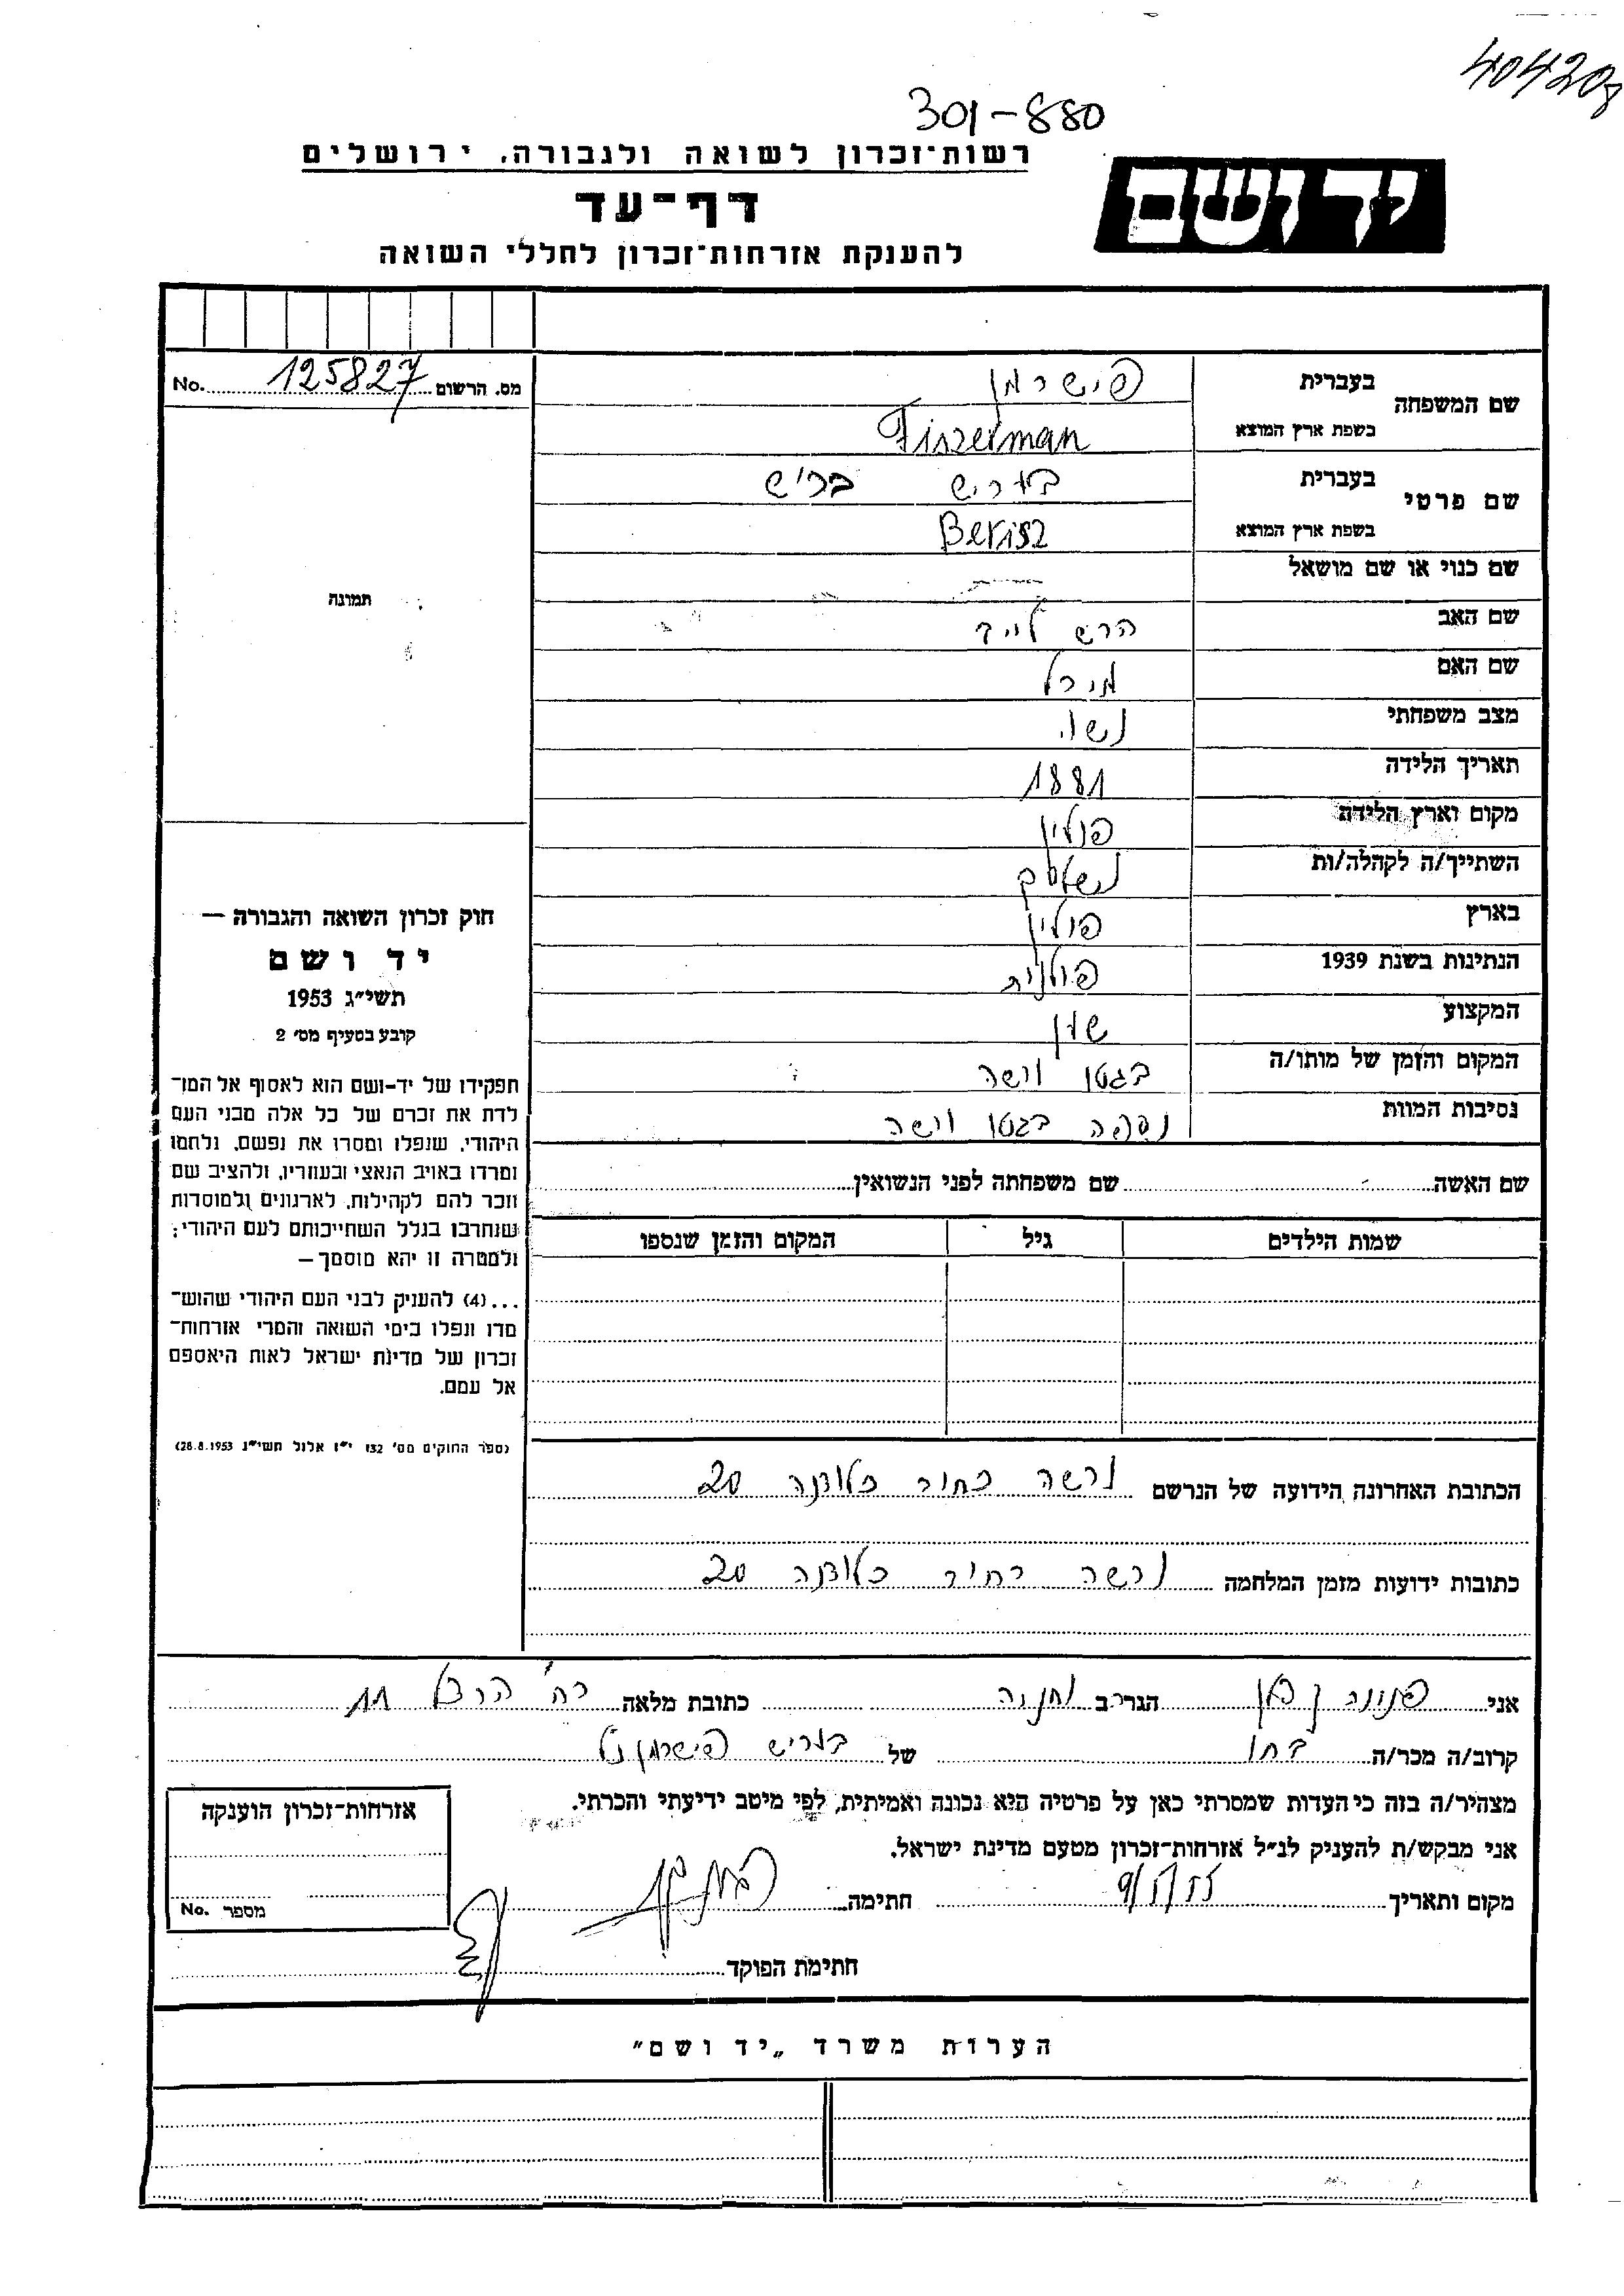 404208
301-880
רשות־זכרון לשואה ולגבורה, ירושלים
יד ושם
דף־עד
להענקת אזרחות־זכרון לחללי השואה
מס. הרשום 125827 No.
שם המשפחה
בעברית פישרמן
בשפת ארץ המוצא Fiszerman
שם פרטי
בעברית בעריש בריש
בשפת ארץ המוצא Berisz
שם כנוי או שם מושאל
תמונה
שם האב הרש לייב
שם האם מירל
מצב משפחתי נשוי
תאריך הלידה 1881
מקום וארץ הלידה פולין
השתייך/ה לקהלה/ות
בארץ פולין
הנתינות בשנת 1939 פולנית
המקצוע
המקום והזמן של מותו/ה בגטו ורשה
נסיבות המוות נספה בגטו ורשה
חוק זכרון השואה והגבורה —
יד ושם
תשי״ג 1953
קובע בסעיף מס׳ 2
תפקידו של יד-ושם הוא לאסוף אל המו־
לדת את זכרם של כל אלה מבני העם
היהודי, שנפלו ומסרו את נפשם, נלחמו
ומרדו באויב הנאצי ובעוזריו, ולהציב שם
וזכר להם לקהילות, לארגונים ולמוסדות
שנחרבו בגלל השתייכותם לעם היהודי;
ולמטרה זו יהא מוסמך —
...(4) להעניק לבני העם היהודי שהוש־
מדו ונפלו בימי השואה והמרי אזרחות־
זכרון של מדינת ישראל לאות היאספם
אל עמם.
(ספר החוקים מס׳ 132 י״ז אלול תשי״ג 28.8.1953)
שם האשה שם משפחתה לפני הנשואין
שמות הילדים גיל המקום והזמן שנספו
הכתובת האחרונה הידועה של הנרשם ורשה רחוב 20
כתובות ידועות מזמן המלחמה ורשה רחוב 20
אני הגר/ב כתובת מלאה רח׳ הרצל 11
קרוב/ה מכר/ה בתו של בעריש פישרמן ז״ל
מצהיר/ה בזה כי העדות שמסרתי כאן על פרטיה היא נכונה ואמיתית, לפי מיטב ידיעתי והכרתי.
אני מבקש/ת להעניק לנ״ל אזרחות־זכרון מטעם מדינת ישראל.
מקום ותאריך 9/5/55 חתימה
חתימת הפוקד
אזרחות־זכרון הוענקה
מספר No.
הערות משרד „יד ושם״